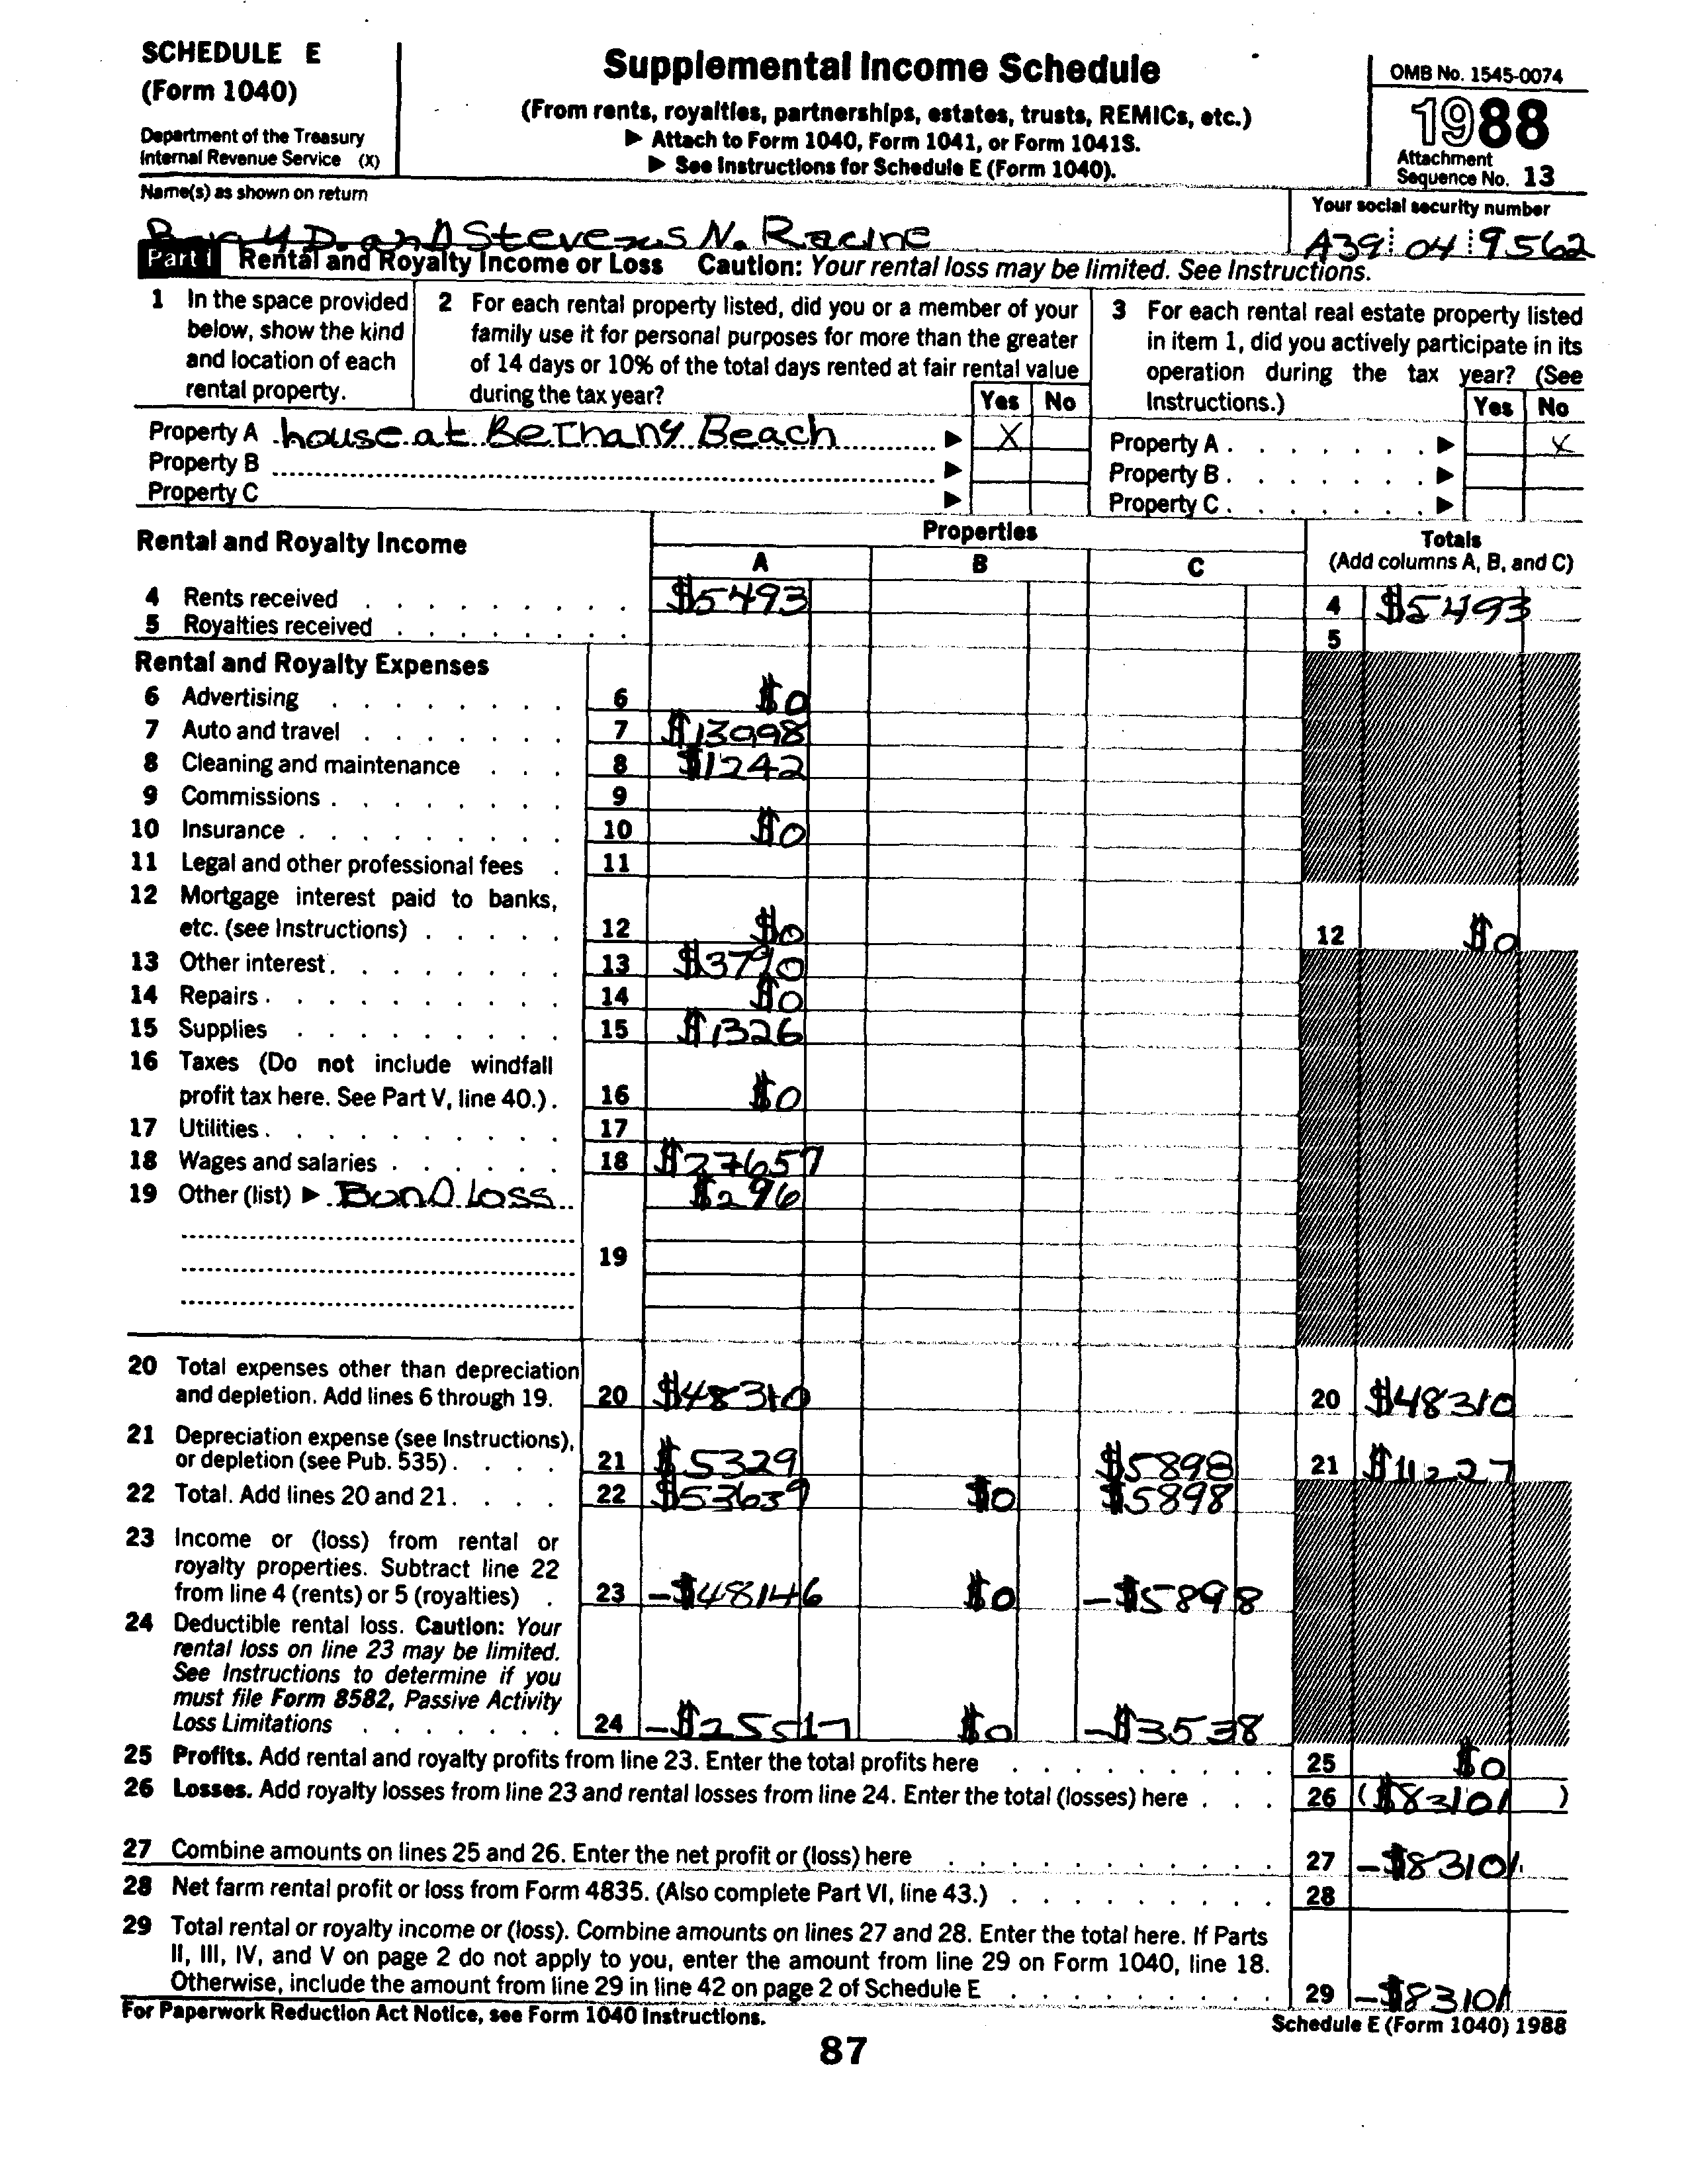 SCHEDULE E
(Form 1040)
Department of the Treasury
Internal Revenue Service (X)
Supplemental Income Schedule
(From rents, royalties, partnerships, estates, trusts, REMICs, etc.)
▶ Attach to Form 1040, Form 1041, or Form 1041S.
▶ See Instructions for Schedule E (Form 1040).
OMB No. 1545-0074
1988
Attachment
Sequence No. 13
Name(s) as shown on return
Your social security number
D. and Stevenus N. Racine
A39 04 9562
Part I Rental and Royalty Income or Loss Caution: Your rental loss may be limited. See Instructions.
1 In the space provided
below, show the kind
and location of each
rental property.
2 For each rental property listed, did you or a member of your
family use it for personal purposes for more than the greater
of 14 days or 10% of the total days rented at fair rental value
during the tax year? Yes No
3 For each rental real estate property listed
in item 1, did you actively participate in its
operation during the tax year? (See
Instructions.) Yes No
Property A house at Bethany Beach ▶ X
Property B ▶
Property C ▶
Property A ▶ X
Property B ▶
Property C ▶
Rental and Royalty Income
Properties
A B C
Totals
(Add columns A, B, and C)
4 Rents received $5493 4 $5493
5 Royalties received 5
Rental and Royalty Expenses
6 Advertising 6 $0
7 Auto and travel 7 $13998
8 Cleaning and maintenance 8 $1242
9 Commissions 9
10 Insurance 10 $0
11 Legal and other professional fees 11
12 Mortgage interest paid to banks,
etc. (see Instructions) 12 $0 12 $0
13 Other interest 13 $3790
14 Repairs 14 $0
15 Supplies 15 $1326
16 Taxes (Do not include windfall
profit tax here. See Part V, line 40.) 16 $0
17 Utilities 17
18 Wages and salaries 18 $27657
19 Other (list) ▶ Bond Loss $296
19
20 Total expenses other than depreciation
and depletion. Add lines 6 through 19. 20 $48310 20 $48310
21 Depreciation expense (see Instructions),
or depletion (see Pub. 535) 21 $5329 $5898 21 $11227
22 Total. Add lines 20 and 21 22 $53639 $0 $5898
23 Income or (loss) from rental or
royalty properties. Subtract line 22
from line 4 (rents) or 5 (royalties) 23 -$48146 $0 -$5898
24 Deductible rental loss. Caution: Your
rental loss on line 23 may be limited.
See Instructions to determine if you
must file Form 8582, Passive Activity
Loss Limitations 24 -$25517 $0 -$3538
25 Profits. Add rental and royalty profits from line 23. Enter the total profits here 25 $0
26 Losses. Add royalty losses from line 23 and rental losses from line 24. Enter the total (losses) here 26 ($83101)
27 Combine amounts on lines 25 and 26. Enter the net profit or (loss) here 27 -$83101
28 Net farm rental profit or loss from Form 4835. (Also complete Part VI, line 43.) 28
29 Total rental or royalty income or (loss). Combine amounts on lines 27 and 28. Enter the total here. If Parts
II, III, IV, and V on page 2 do not apply to you, enter the amount from line 29 on Form 1040, line 18.
Otherwise, include the amount from line 29 in line 42 on page 2 of Schedule E 29 -$83101
For Paperwork Reduction Act Notice, see Form 1040 Instructions.
Schedule E (Form 1040) 1988
87